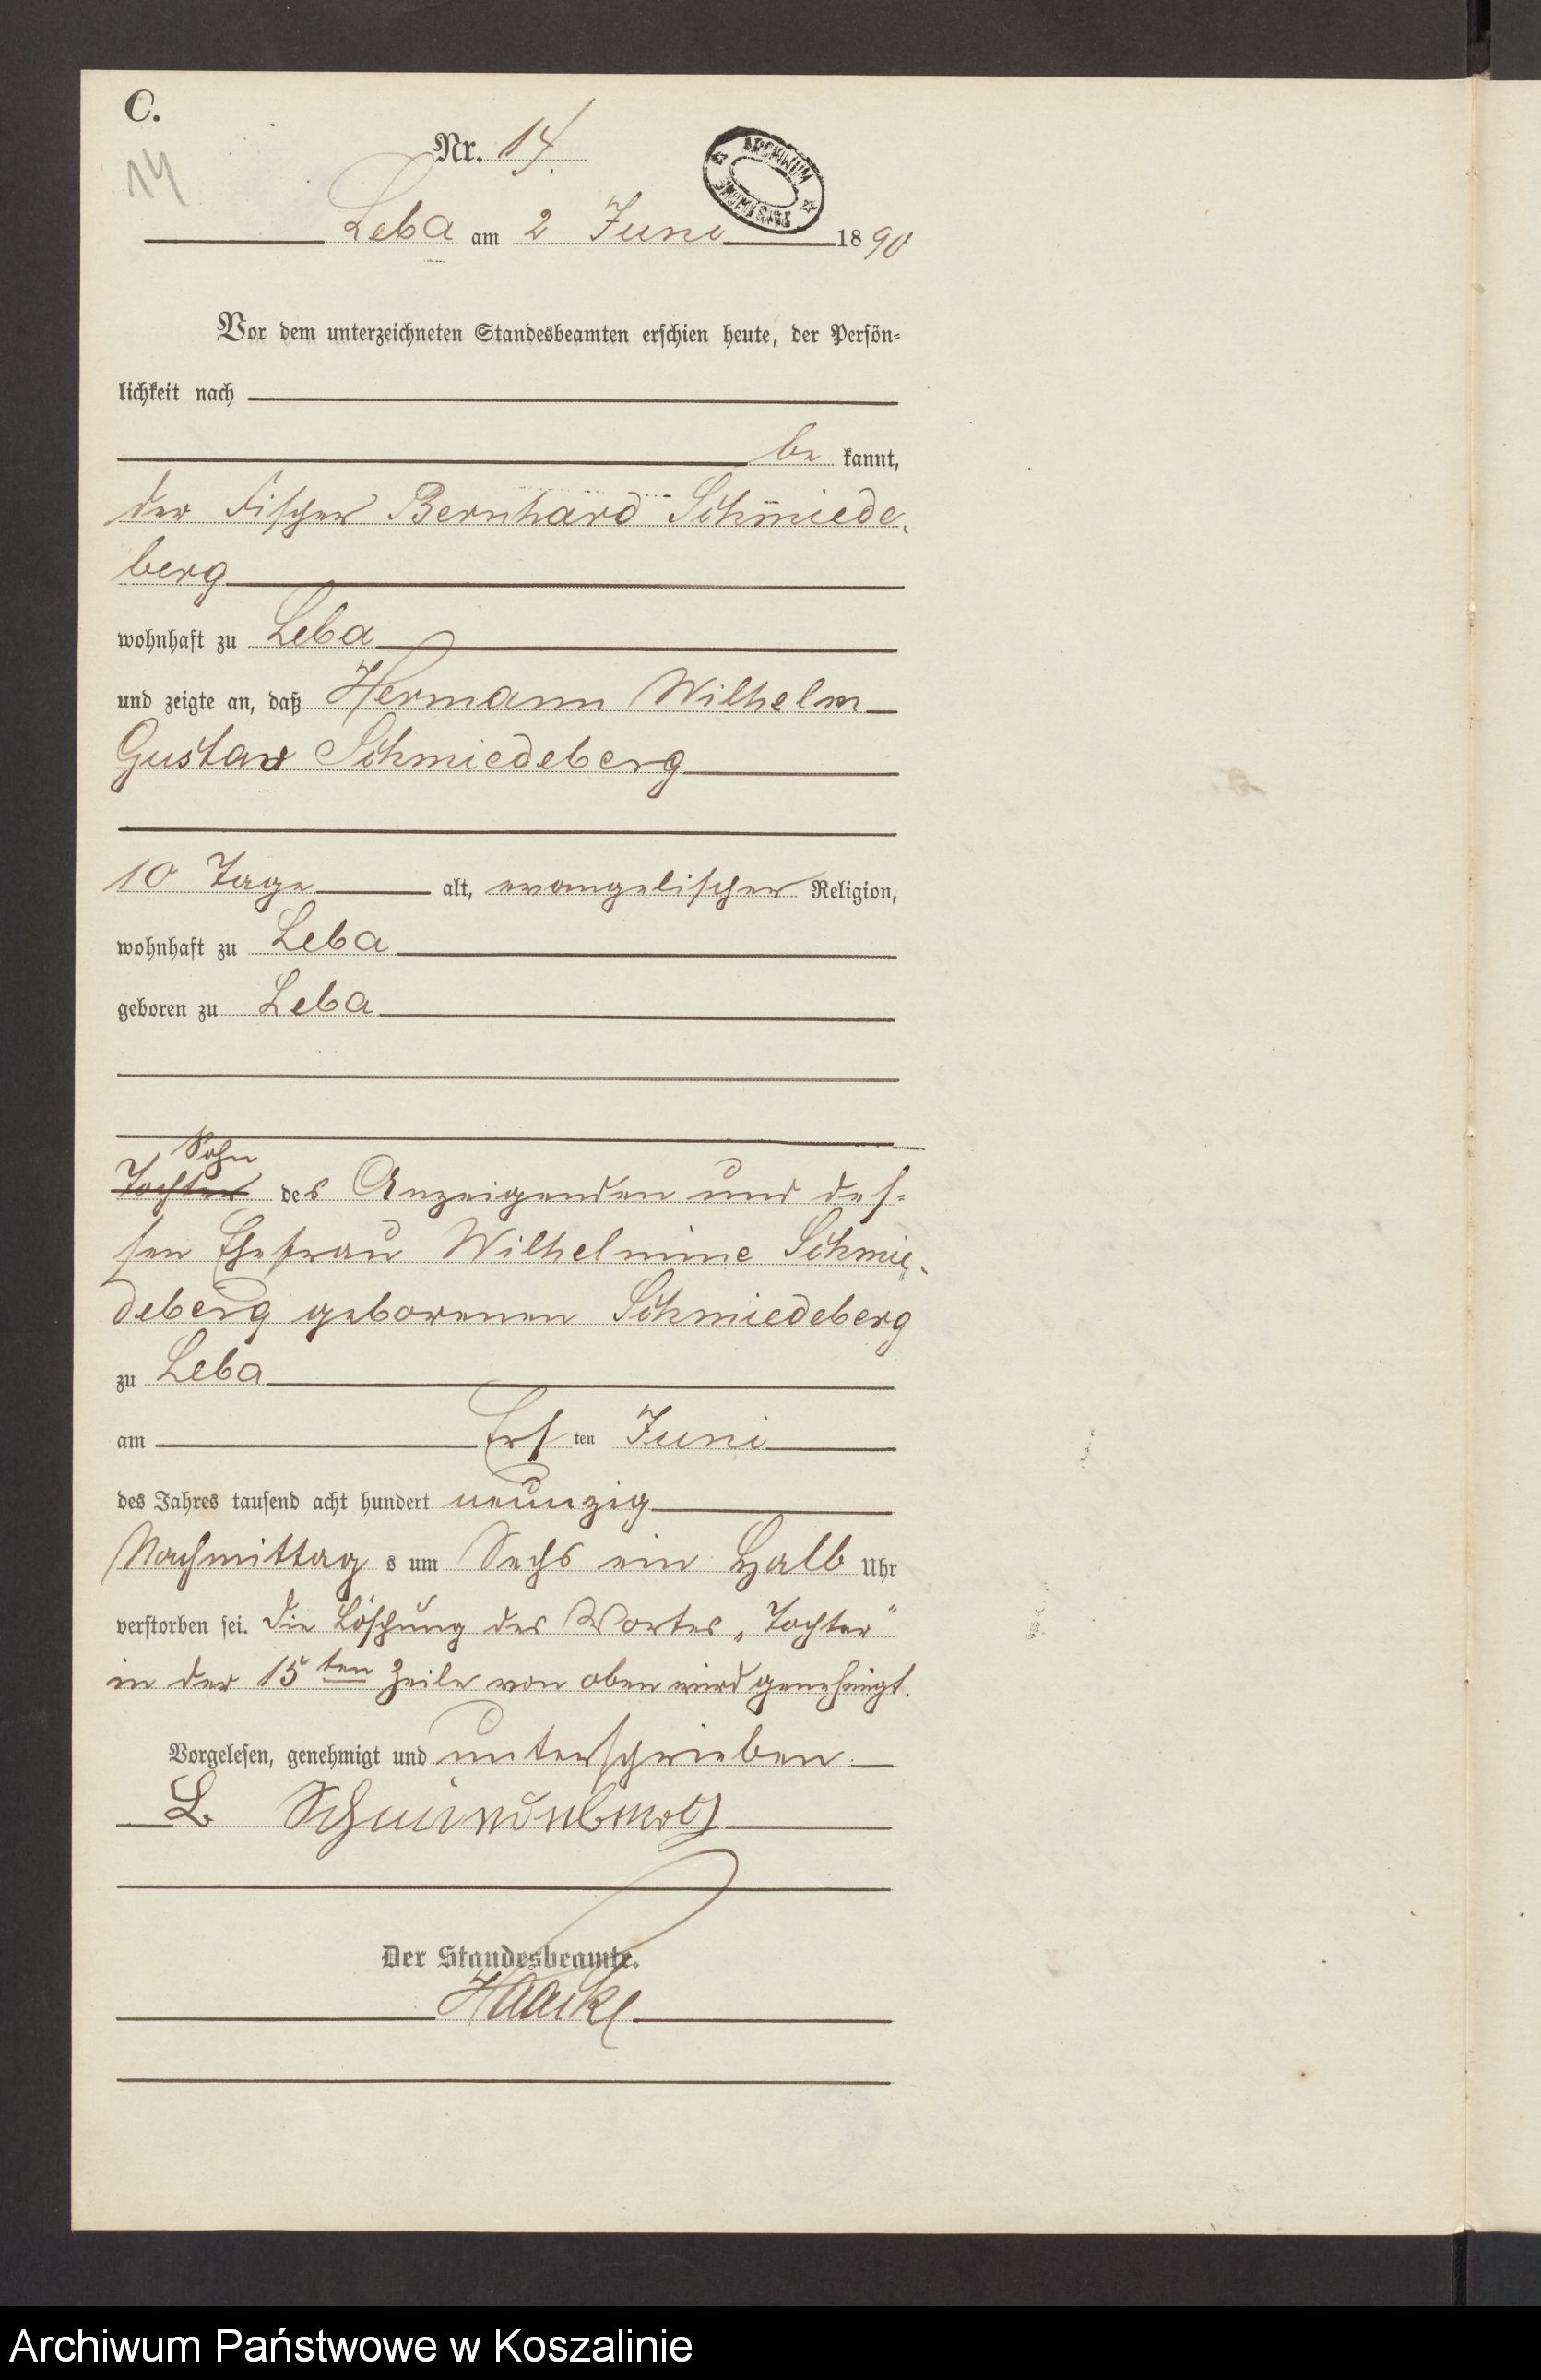 C.
14
Nr. 14.
ARCHIWUM PAŃSTWOWE
Leba am 2 Juni 1890
Vor dem unterzeichneten Standesbeamten erschien heute, der Persön-
lichkeit nach
be kannt,
der Fischer Bernhard Schmiede-
berg
wohnhaft zu Leba
und zeigte an, daß Hermann Wilhelm
Gustav Schmiedeberg
10 Tage alt, evangelischer Religion,
wohnhaft zu Leba
geboren zu Leba
Sohn
Tochter des Anzeigenden und des-
sen Ehefrau Wilhelmine Schmie-
deberg geborenen Schmiedeberg
zu Leba
am Ers ten Juni
des Jahres tausend acht hundert neunzig
Nachmittag s um Sechs ein Halb Uhr
verstorben sei. Die Löschung des Wortes „Tochter"
in der 15ten Zeile von oben wird genehmigt.
Vorgelesen, genehmigt und unterschrieben.
B. Schmiedeberg
Der Standesbeamte.
Haacke
Archiwum Państwowe w Koszalinie